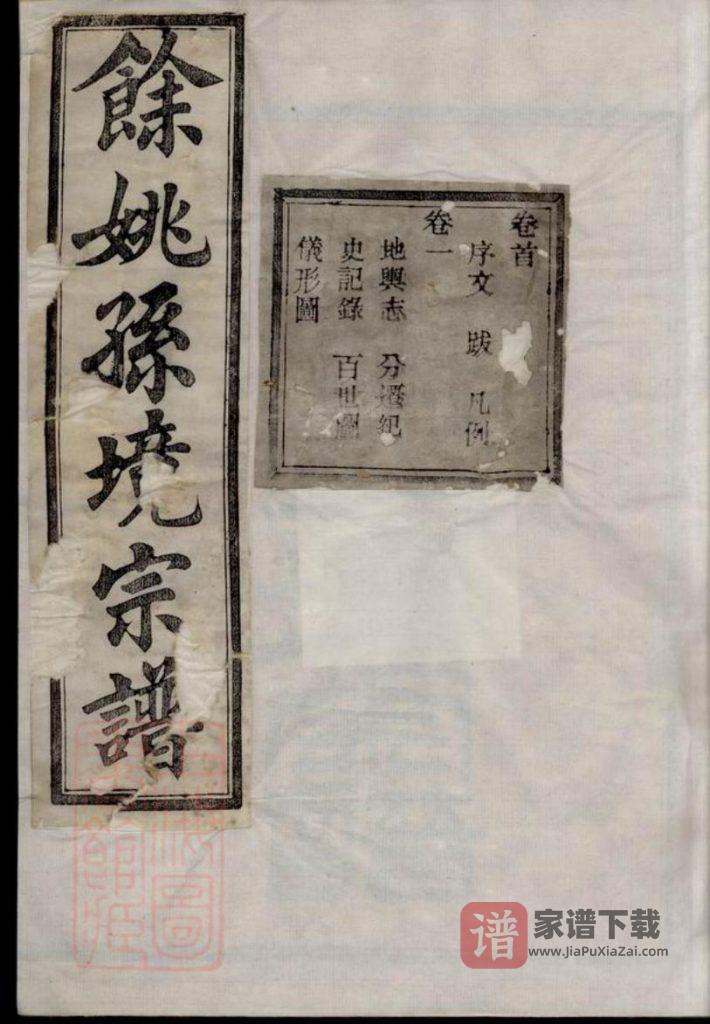 餘姚孫境宗譜
卷首
序文 跋 凡例
卷一
地輿志 分遷紀
史記錄 百世圖
儀形圖
谱
家谱下载
www.JiaPuXiaZai.com